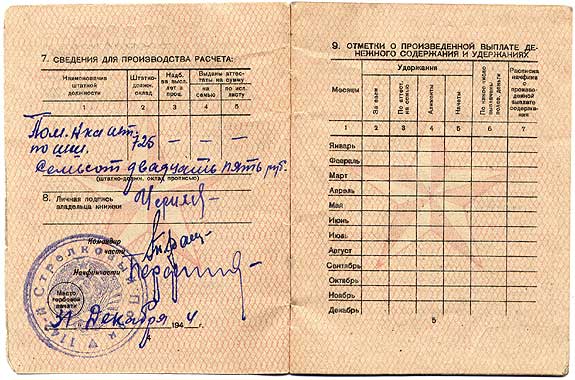 7. СВЕДЕНИЯ ДЛЯ ПРОИЗВОДСТВА РАСЧЕТА:
Наименования штатной должности
Штатно-должн. оклад
Надб. за высл. лет в проц.
Выданы аттестаты на сумму
на семью
по исп. листу
1 2 3 4 5
Пом. Нач шт. 725 — — —
по
семьсот двадцать пять руб.
(штатно-должн. оклад прописью)
8. Личная подпись
владельца книжки
Командир
части
Начфинчасти
Место
гербовой
печати
31 Декабря 1944 г.
4
1142-й Стрелковый Полк
9. ОТМЕТКИ О ПРОИЗВЕДЕННОЙ ВЫПЛАТЕ ДЕ-
НЕЖНОГО СОДЕРЖАНИЯ И УДЕРЖАНИЯХ
Месяцы
Удержания
За заем
По аттест. на семью
Алименты
Начеты
По какое число выплачены полев. деньги
Расписка начфина о произведенной выплате содержания
1 2 3 4 5 6 7
Январь
Февраль
Март
Апрель
Май
Июнь
Июль
Август
Сентябрь
Октябрь
Ноябрь
Декабрь
5